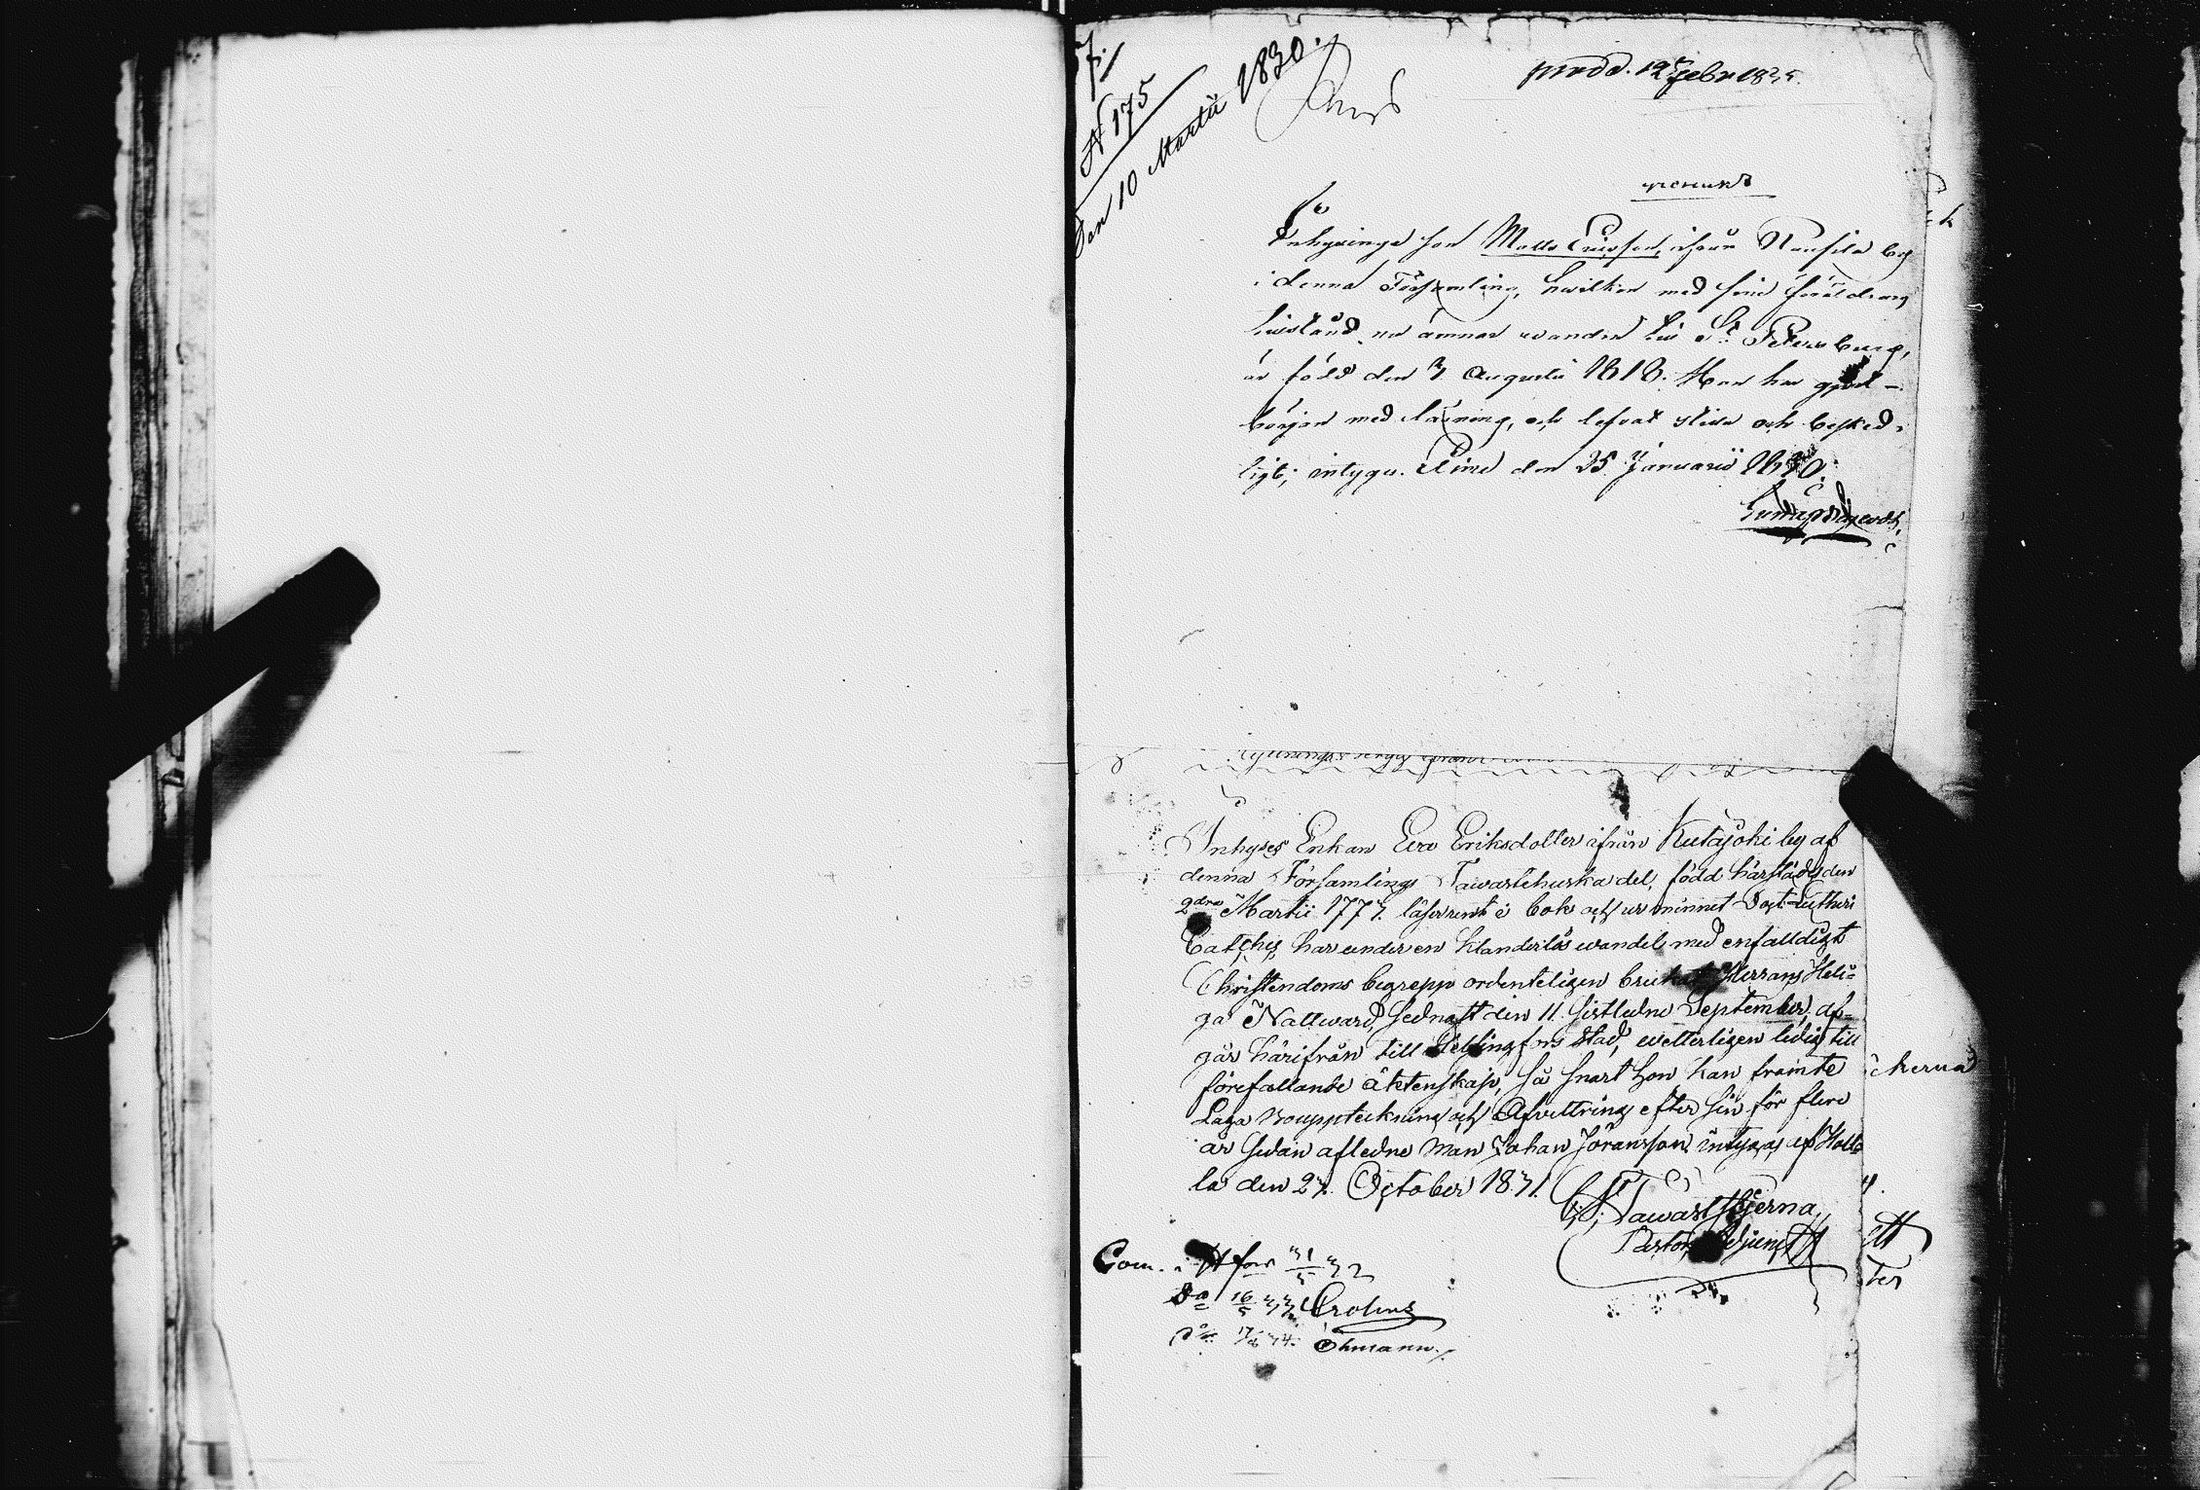 N 175
den 10 Martii 1830.
prodd. 12 Febr 18
Inhysings son Matts Ericsson, ifrån by
i denna Församling, hwilken med sine föräldrars
tilstånd nu ämnar wandra till St. Petersburg,
är född den 7 Augusti 1818. Han har gjort
början med läsning, och lefvat stilla och besked-
ligt; intygar. den 25 Januarii 1830.
Inhyses Enkan Eva Eriksdotter ifrån Kutajoki by af
denna Församlings Tawastehuska del, född härstädes den
2dra Martii 1777. läser rent i bok och ur minnet Doct. Lutheri
Catches, har under en klanderlös wandel, med enfalldigt
Christendoms begrepp ordenteligen brukat Herrans Heli-
ga Nattward, sednast den 11 sistledne September, af-
går härifrån till Helsingfors Stad, wetterligen ledig till
förefallande äktenskap, så snart hon kan framte
Laga Bouppteckning och Afvittring efter sin för flere
år sedan afledne man Johan Jöransson, intygas af Hollo-
la den 27. October 1831.
Tawaststjerna,
Pastors Adjunct
Com. i H fors 31/5 32
Do 16/5 33. Crolius
Do 34. Öhmann.